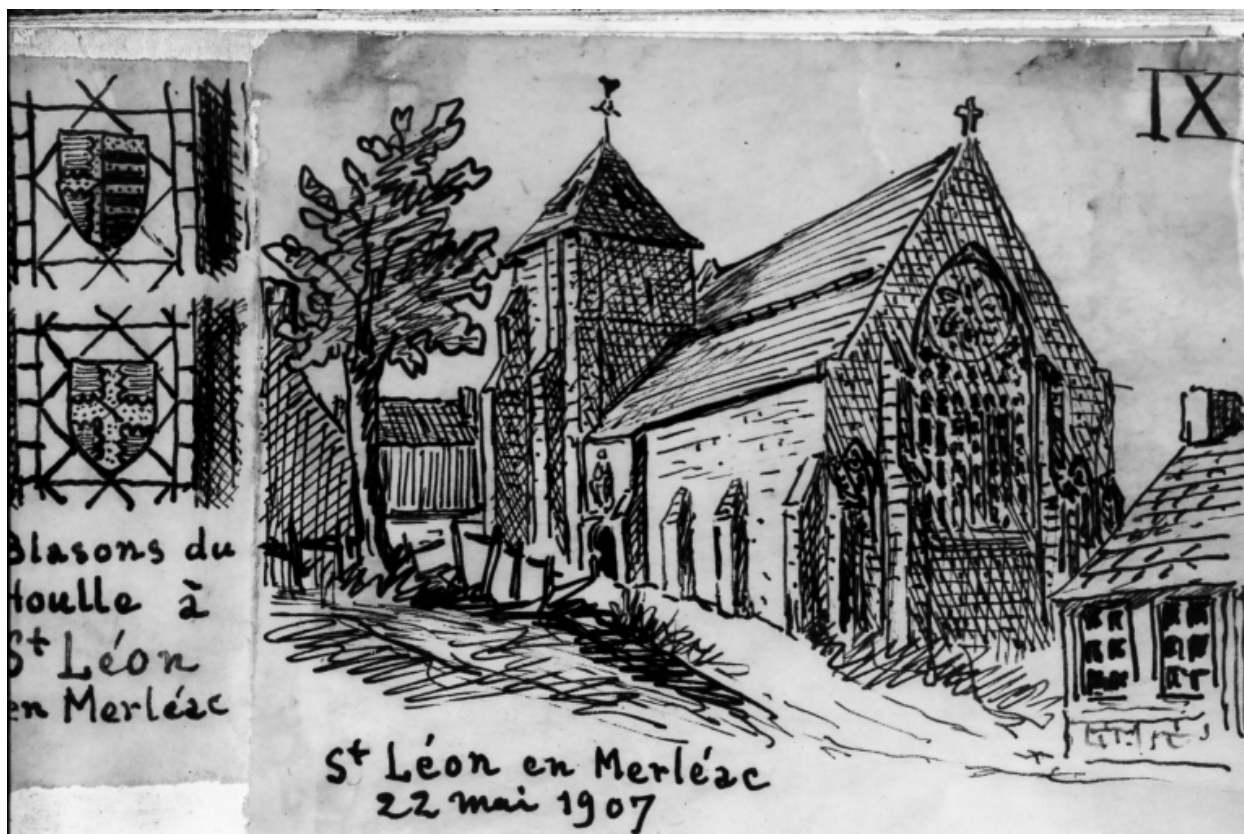 IX
Blasons du
Houlle à
St Léon
en Merléac
St Léon en Merléac
22 mai 1907